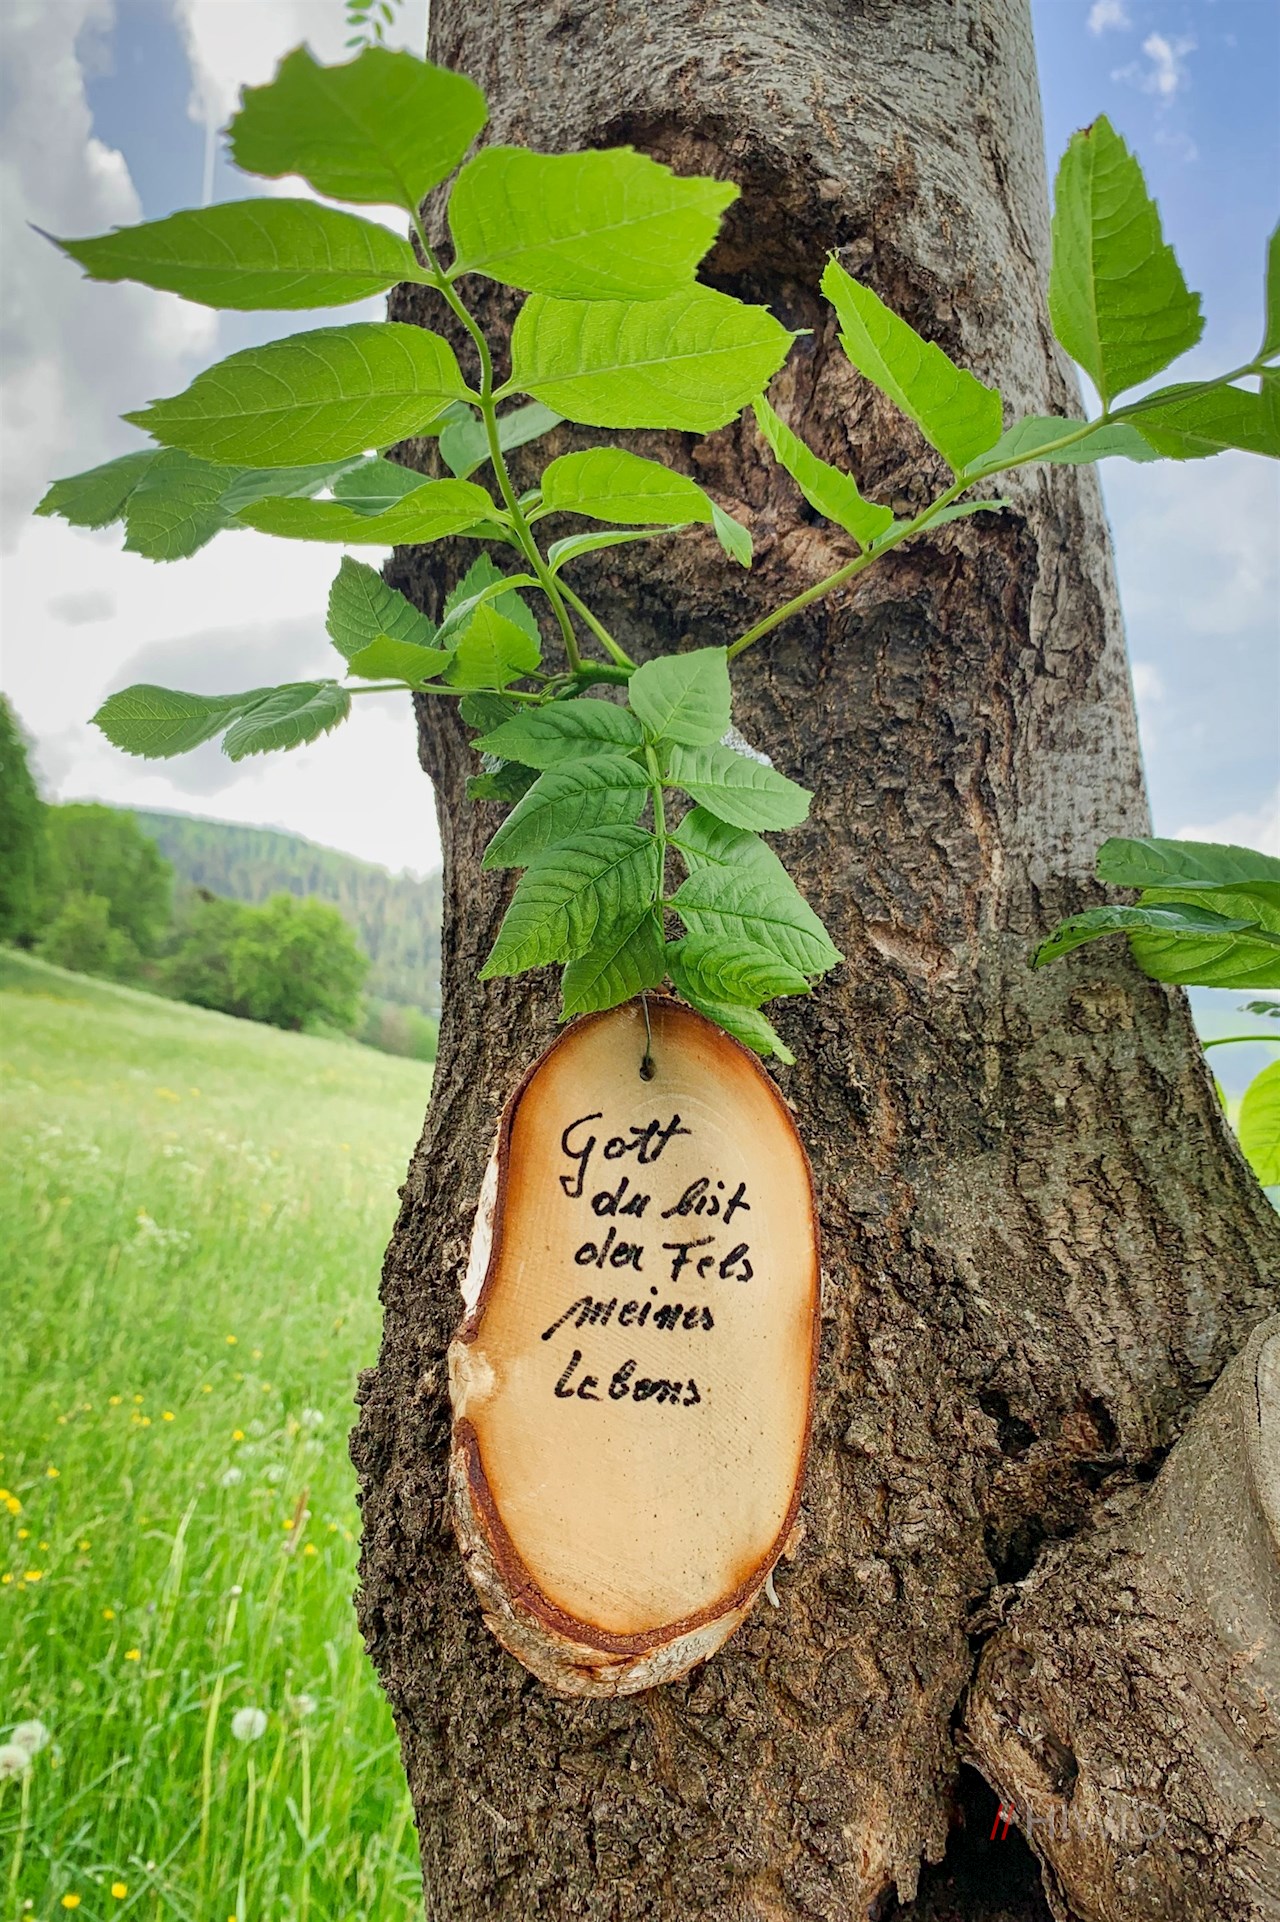 Gott
du bist
der Fels
meines
Lebens